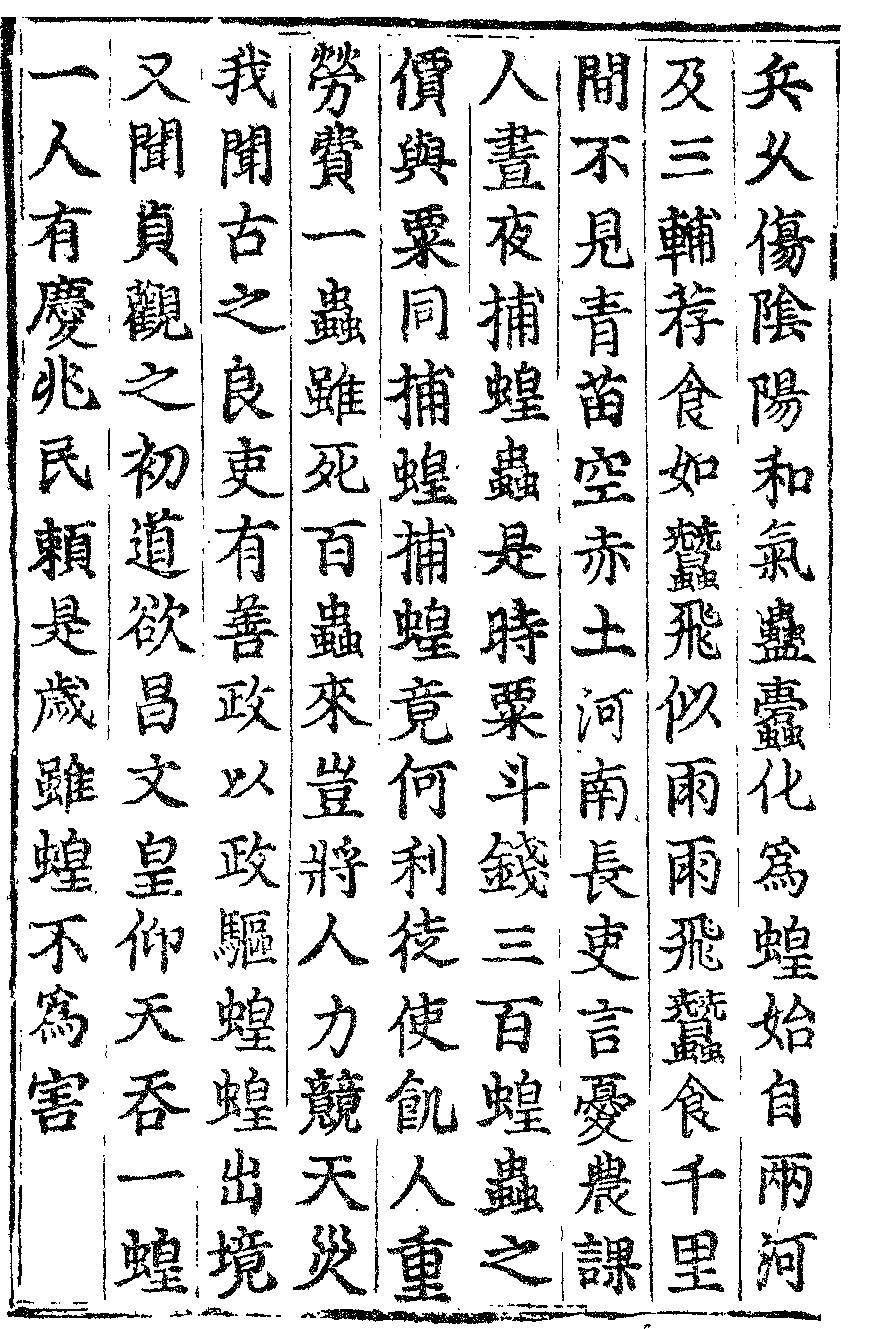 兵乆傷隂陽和氣蠱蠧化爲蝗始自兩河
及三輔荐食如蠶飛似雨雨飛蠶食千里
間不見青苗空赤土河南長吏言憂農課
人晝夜捕蝗蟲是時粟斗錢三百蝗蟲之
價與粟同捕蝗捕蝗竟何利徒使飢人重
勞費一蟲雖死百蟲來豈將人力競天災
我聞古之良吏有善政以政驅蝗蝗出境
又聞貞觀之初道欲昌文皇仰天吞一蝗
一人有慶兆民頼是歲雖蝗不爲害